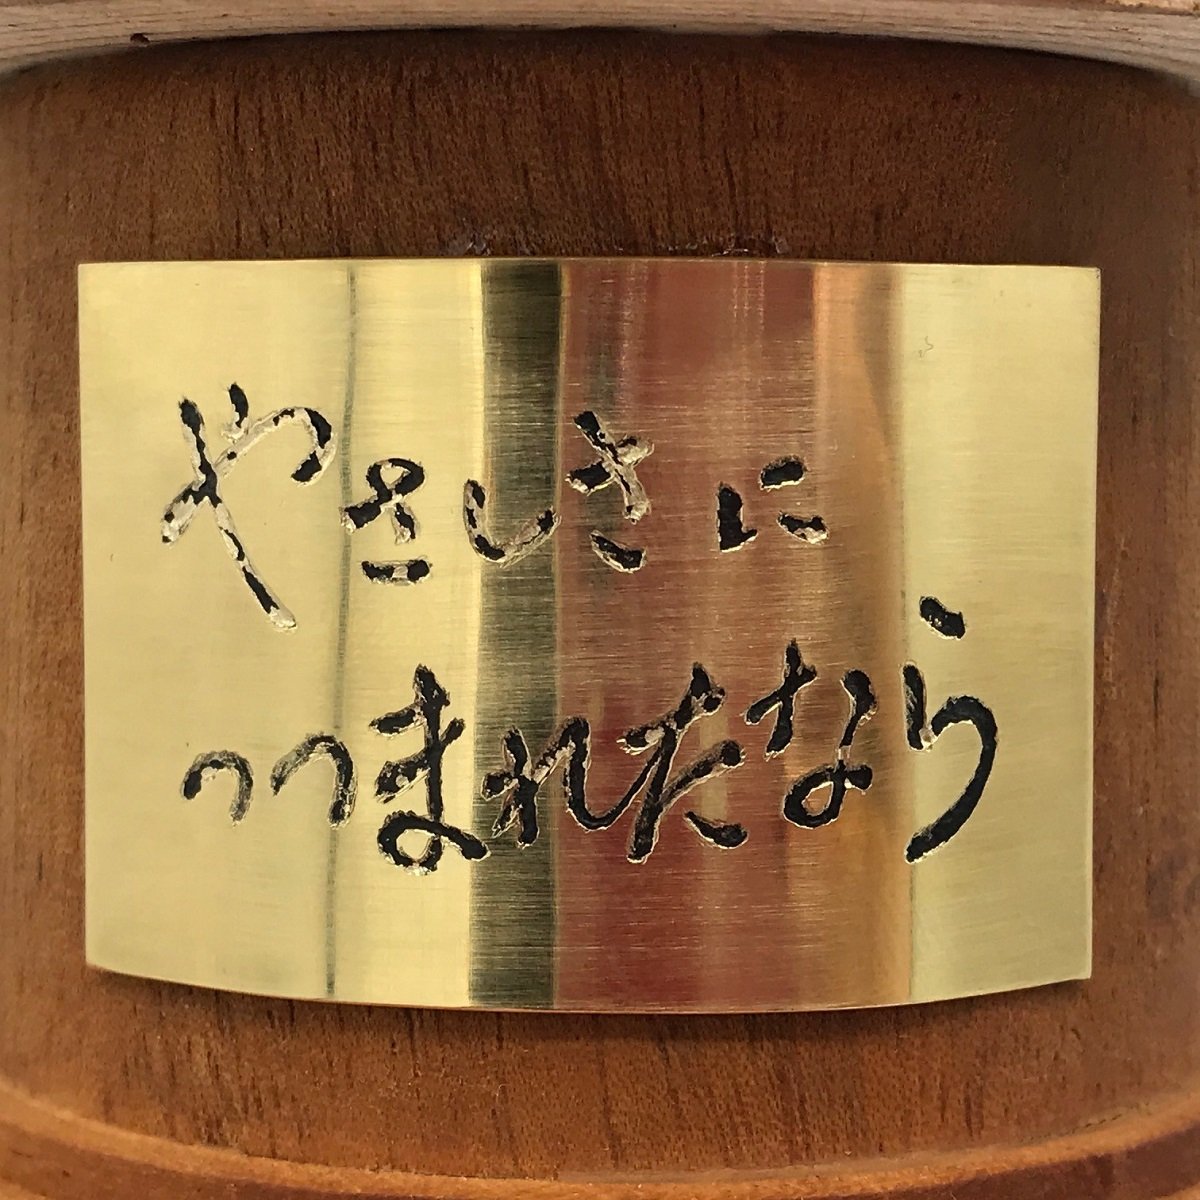 やさしさに
つつまれたなら